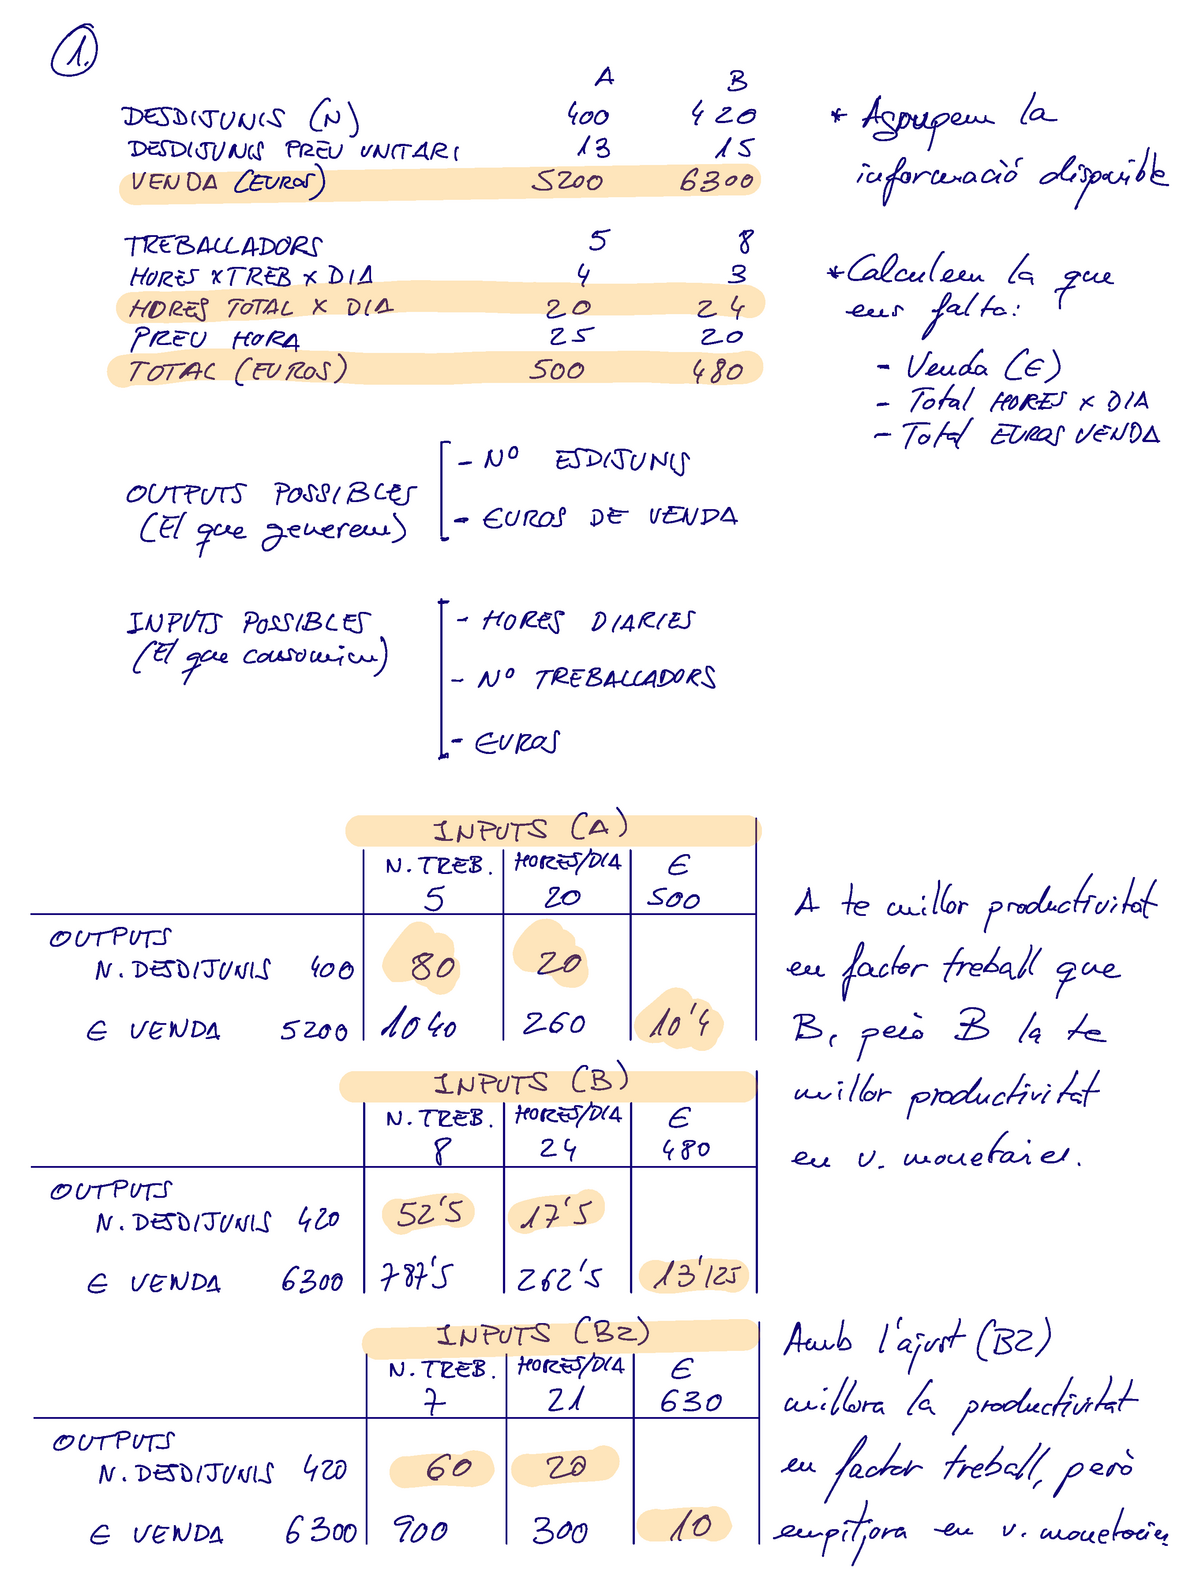 1.
A B
DESDIJUNIS (N) 400 420
DESDIJUNIS PREU UNITARI 13 15
VENDA (EUROS) 5200 6300
* Agrupem la
informació disponible
TREBALLADORS 5 8
HORES X TREB X DIA 4 3
HORES TOTAL X DIA 20 24
PREU HORA 25 20
TOTAL (EUROS) 500 480
* Calculem la que
ens falta:
- Venda (€)
- Total HORES X DIA
- Total EUROS VENDA
OUTPUTS POSSIBLES
(El que generem)
- Nº ESDIJUNIS
- EUROS DE VENDA
INPUTS POSSIBLES
(El que consumim)
- HORES DIARIES
- Nº TREBALLADORS
- EUROS
INPUTS (A)
N. TREB. HORES/DIA €
5 20 500
OUTPUTS
N. DESDIJUNIS 400 80 20
€ VENDA 5200 1040 260 10'4
A te millor productivitat
en factor treball que
B, però B la te
millor productivitat
en v. monetaries.
INPUTS (B)
N. TREB. HORES/DIA €
8 24 480
OUTPUTS
N. DESDIJUNIS 420 52'5 17'5
€ VENDA 6300 787'5 262'5 13'125
INPUTS (B2)
N. TREB. HORES/DIA €
7 21 630
OUTPUTS
N. DESDIJUNIS 420 60 20
€ VENDA 6300 900 300 10
Amb l'ajust (B2)
millora la productivitat
en factor treball, però
empitjora en v. monetaries